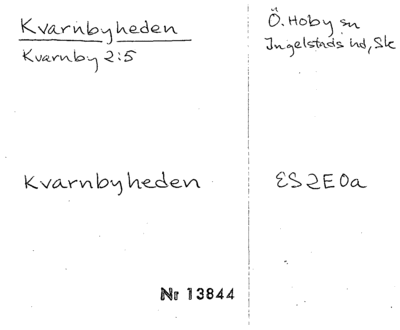 Kvarnbyheden
Kvarnby 2:5
Ö. Hoby sn
Ingelstads hd, Sk
Kvarnbyheden
ES2E0a
Nr 13844